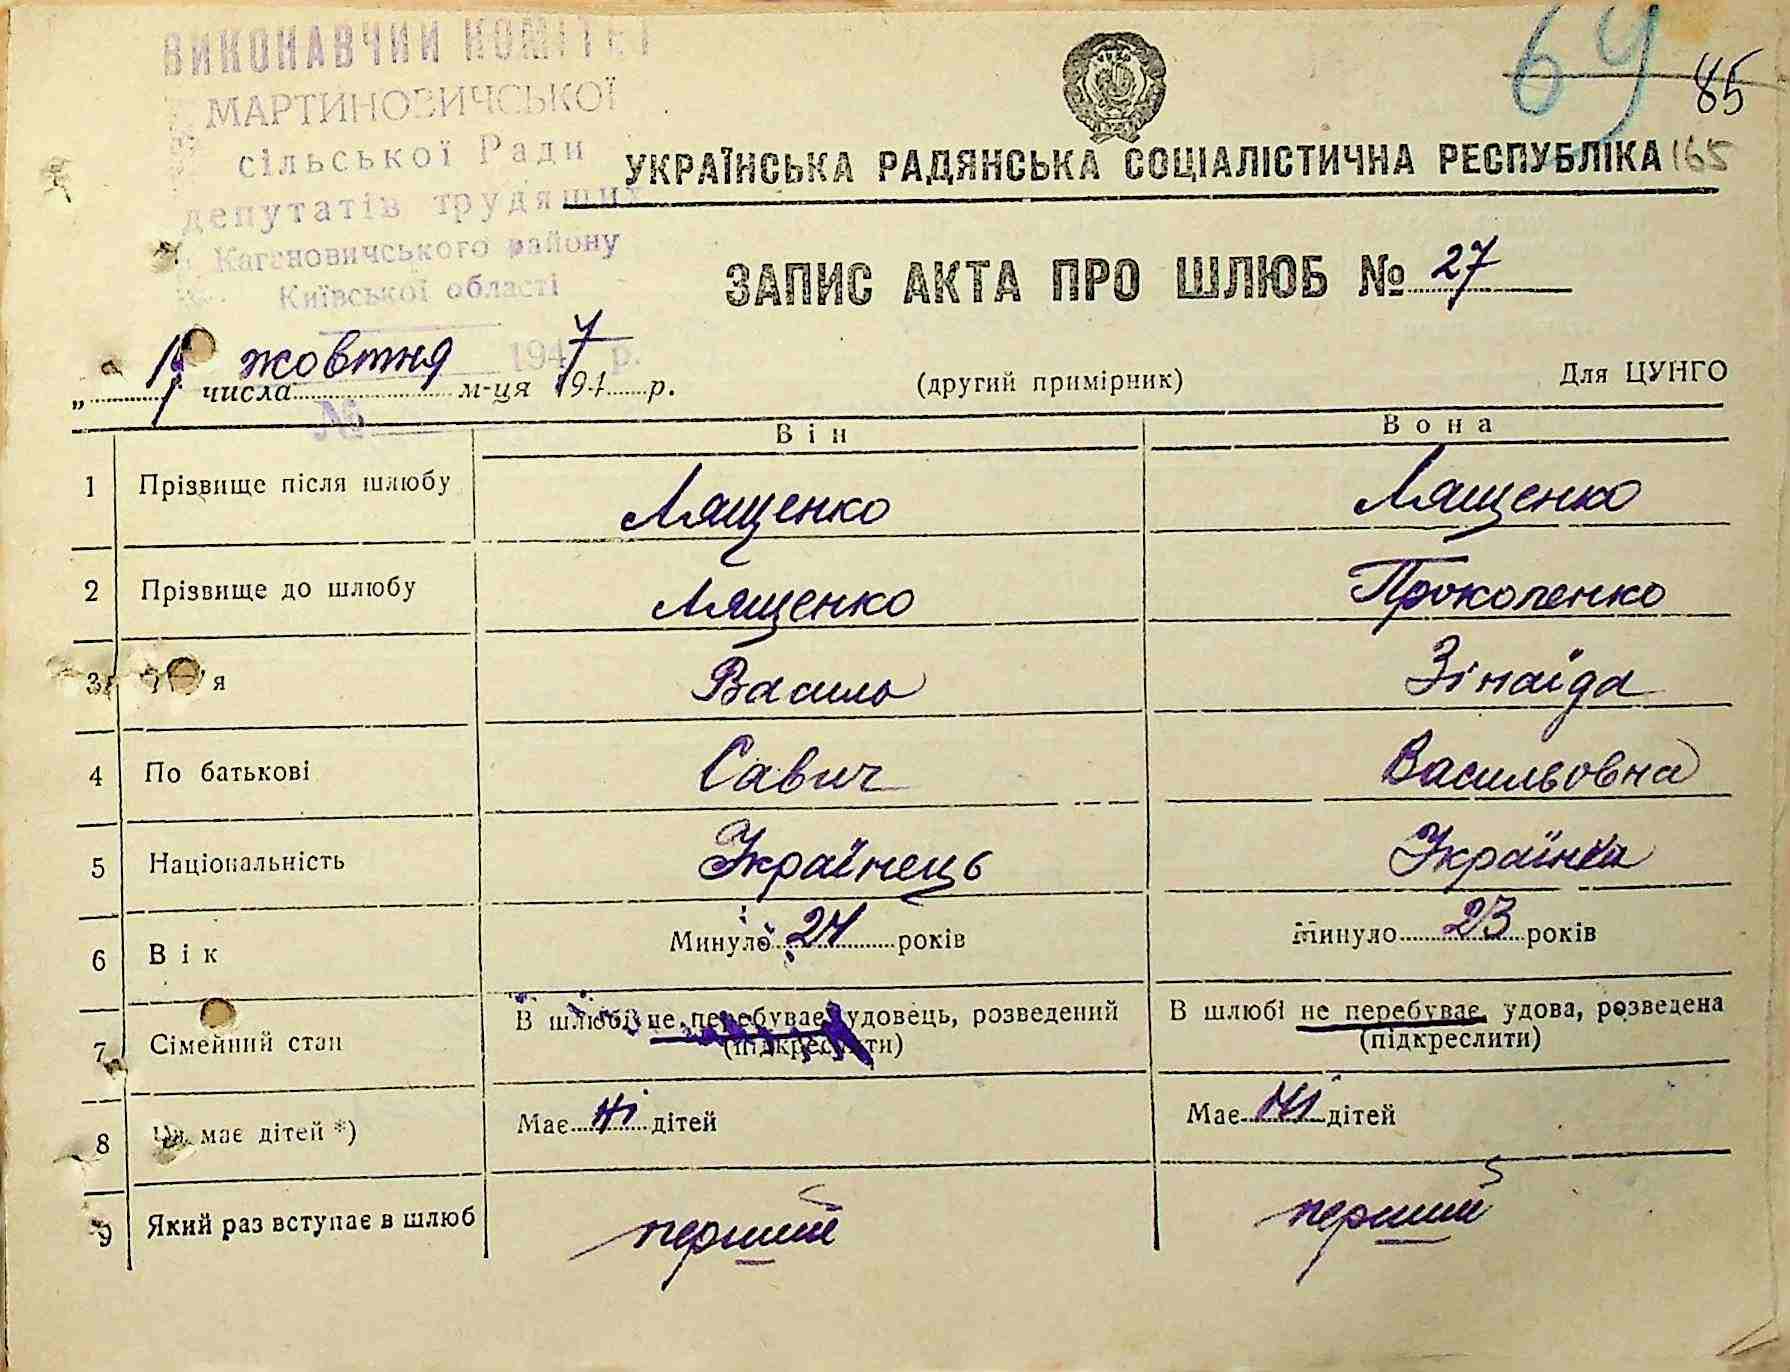 ВИКОНАВЧИЙ КОМІТЕТ
МАРТИНОВИЧСЬКОЇ
сільської Ради
депутатів трудящих
Кагановичського району
Київської області
194 р.
№
69 85
165
УКРАЇНСЬКА РАДЯНСЬКА СОЦІАЛІСТИЧНА РЕСПУБЛІКА
ЗАПИС АКТА ПРО ШЛЮБ № 27
числа жовтня м-ця 1947 р. (другий примірник) Для ЦУНГО
Він Вона
1 Прізвище після шлюбу Лященко Лященко
2 Прізвище до шлюбу Лященко Прокопенко
3 Василь Зінаїда
4 По батькові Савич Васильовна
5 Національність Українець Українка
6 Вік Минуло 24 років Минуло 23 років
7 Сімейний стан В шлюбі не перебуває, удовець, розведений (підкреслити) В шлюбі не перебуває, удова, розведена (підкреслити)
8 Чи має дітей *) Має ні дітей Має ні дітей
9 Який раз вступає в шлюб перший перший